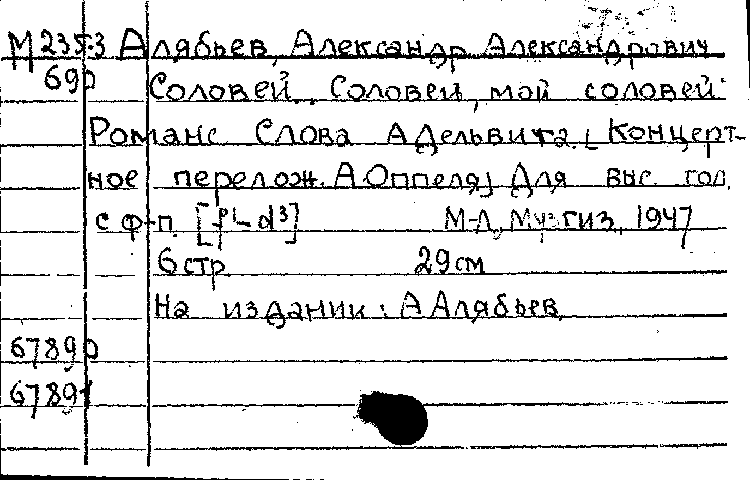 М 235.3 Алябьев, Александр Александрович
690 Соловей.. Соловей, мой соловей.
Романс Слова А Дельвига. [Концерт-
ное перелож. А Оппеля] Для выс. гол.
с ф-п. [f¹-d³] М-Л, Музгиз, 1947
6 стр. 29 см
На издании: А Алябьев.
67890
67891